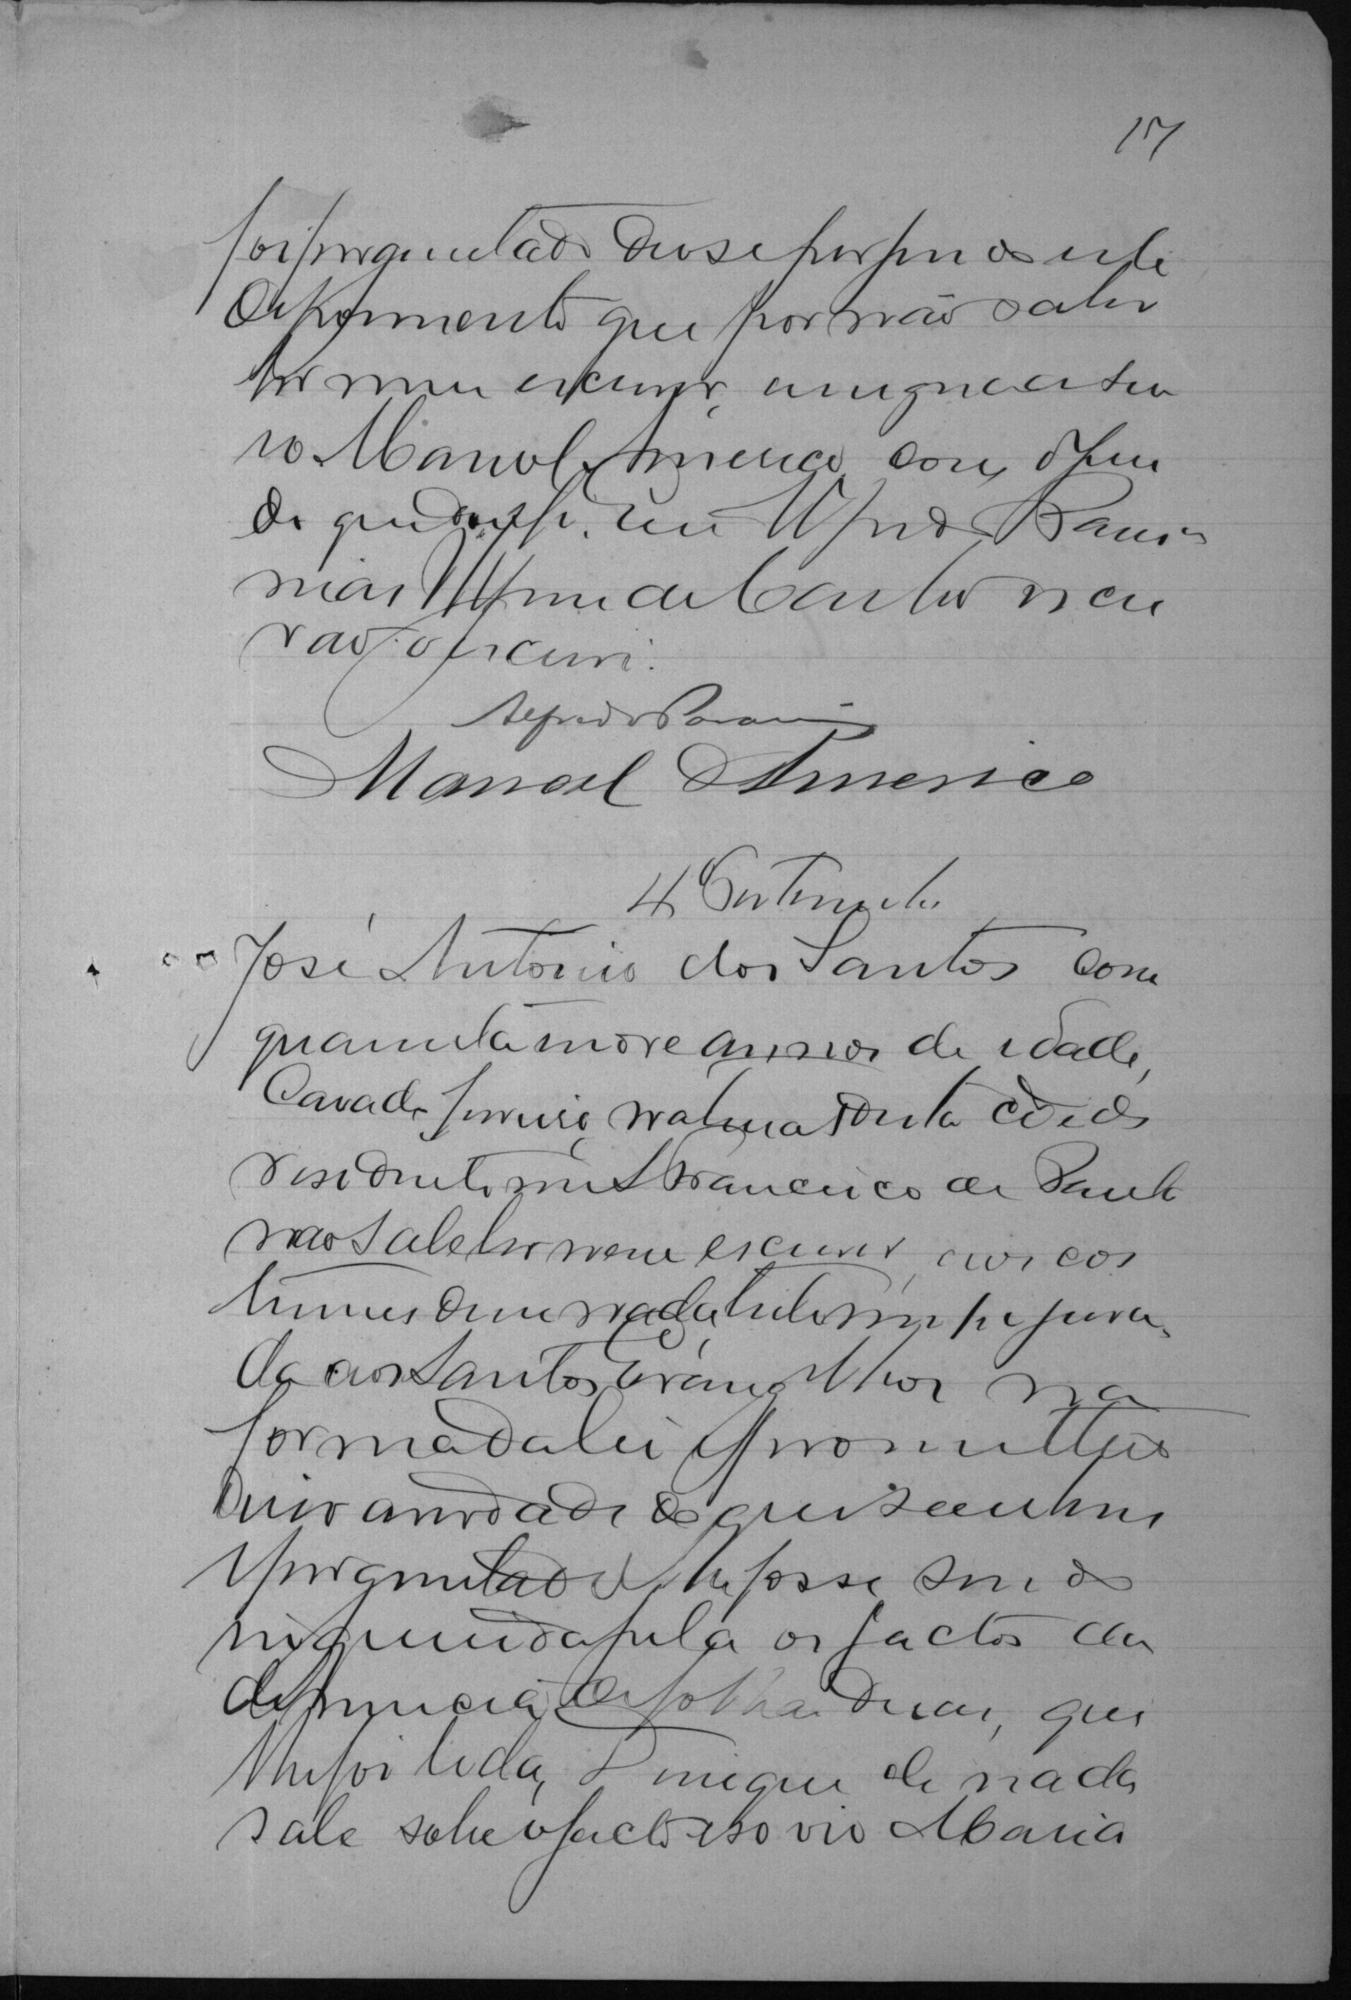 17
foi perguntado deu se por findo este
depoimento que por não saber
ler nem escrever, assigna a seu
rogo Manoel Americo com o juiz
do que dou fé. Eu Alfredo
de Castro escri
vão o escrevi.
Alfredo
Manoel Americo
4ª Testemunha
José Antonio dos Santos com
quarenta nove annos de idade,
Casado, natural desta cidade
residente em S Francisco de Paula
não sabe ler nem escrever, aos cos
tumes disse nada, testemunha jura
da aos Santos Evangelhos na
forma da lei e prometteu
dizer a verdade do que soubesse
e perguntado lhe fosse sendo
inquirida pela os factos da
denuncia de folhas duas, que
lhe foi lida, Disse que de nada
sabe sobre o facto e só vio Maria